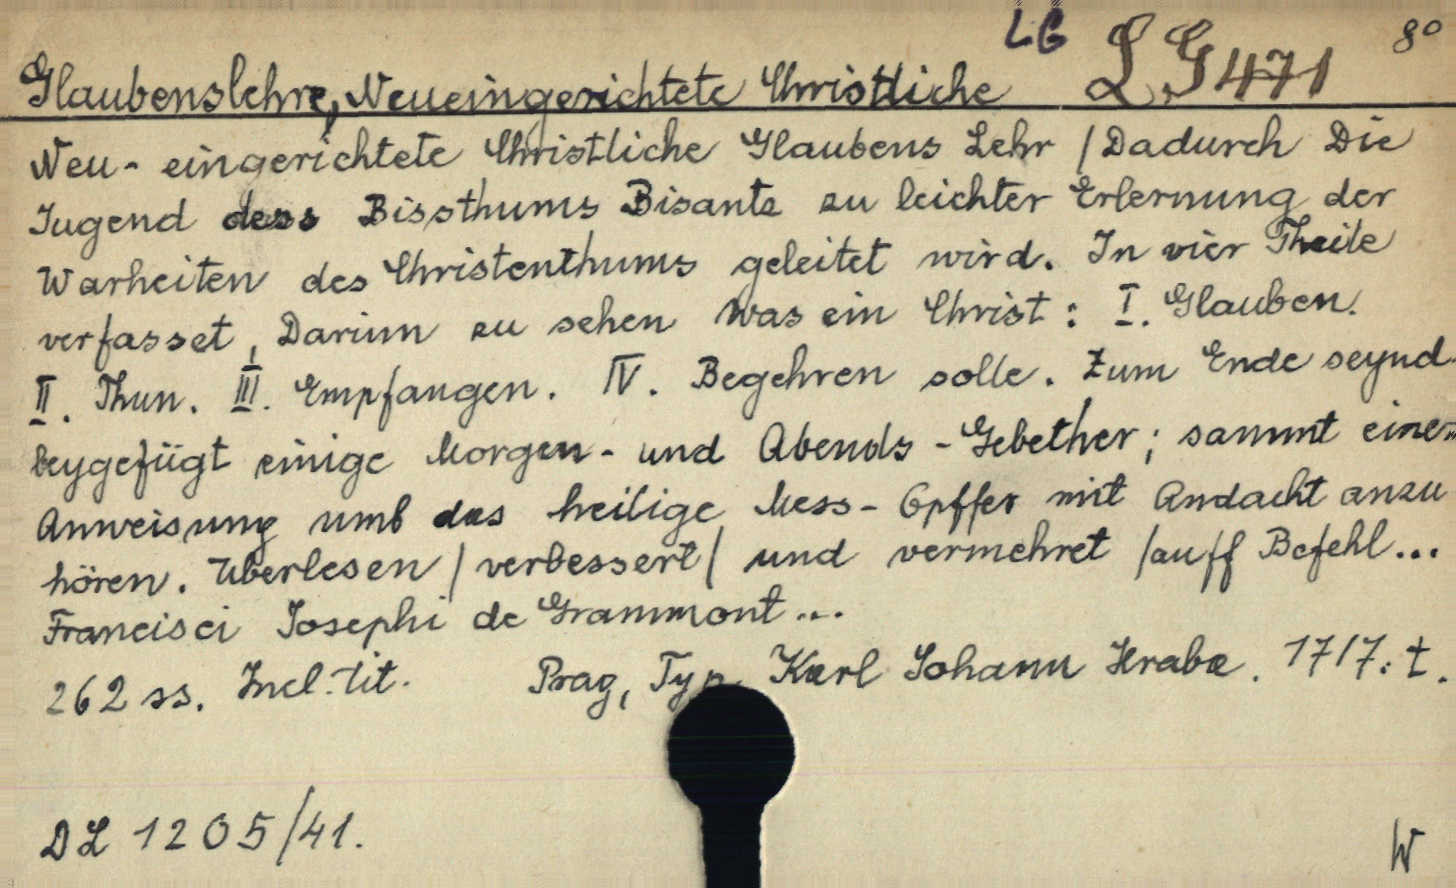 LG LG 471 8°
Glaubenslehre, Neueingerichtete Christliche
Neu-eingerichtete Christliche Glaubens Lehr / Dadurch Die
Jugend dess Bissthums Bisantz zu leichter Erlernung der
Warheiten des Christenthums geleitet wird. In vier Theile
verfasset, Darinn zu sehen was ein Christ: I. Glauben.
II. Thun. III. Empfangen. IV. Begehren solle. Zum Ende seynd
beygefügt einige Morgen- und Abends-Gebether; sammt einer
Anweisung umb das heilige Mess-Opffer mit Andacht anzu
hören. Uberlesen / verbessert / und vermehret / auff Befehl...
Francisci Josephi de Grammont...
262 ss. Incl. tit. Prag, Typ. Karl Johann Hraba. 1717. t.
DL 1205/41.
W